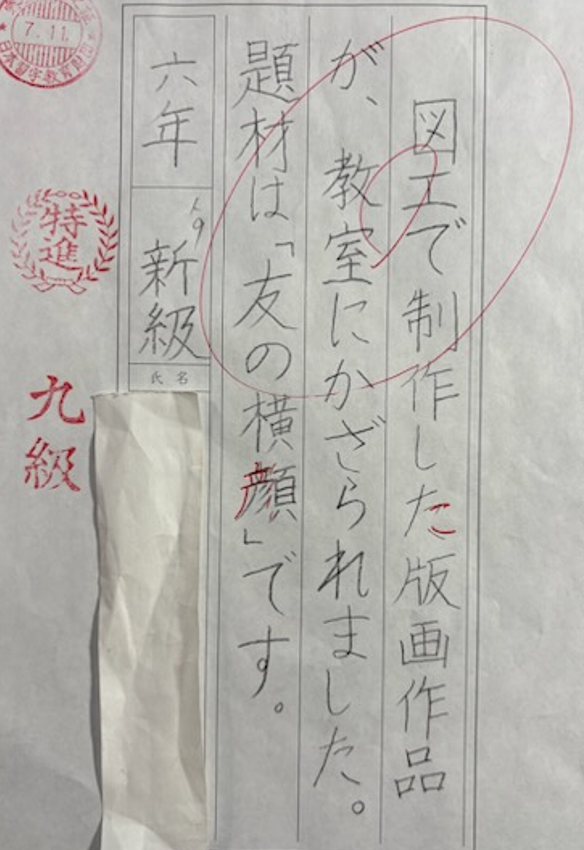 図工で制作した版画作品
が、教室にかざられました。
題材は「友の横顔」です。
六年 新級
氏名
特進
九級
7.11.
日本習字教育財団